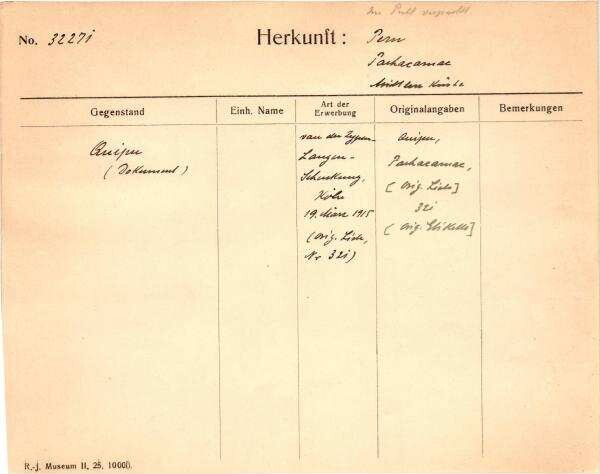 Im Pult verpackt
No. 32271 Herkunft: Peru
Pachacamac
Mittlere Küste
Gegenstand Einh. Name Art der Erwerbung Originalangaben Bemerkungen
Quipu
(Dokument)
van der Zypen-
Langen-
Schenkung,
Köln
19. März 1915
(Orig. Liste,
Nr. 32i)
Quipu,
Pachacamac,
[Orig. Liste]
32i
[Orig. Etikette]
R.-j. Museum II, 25, 1000).